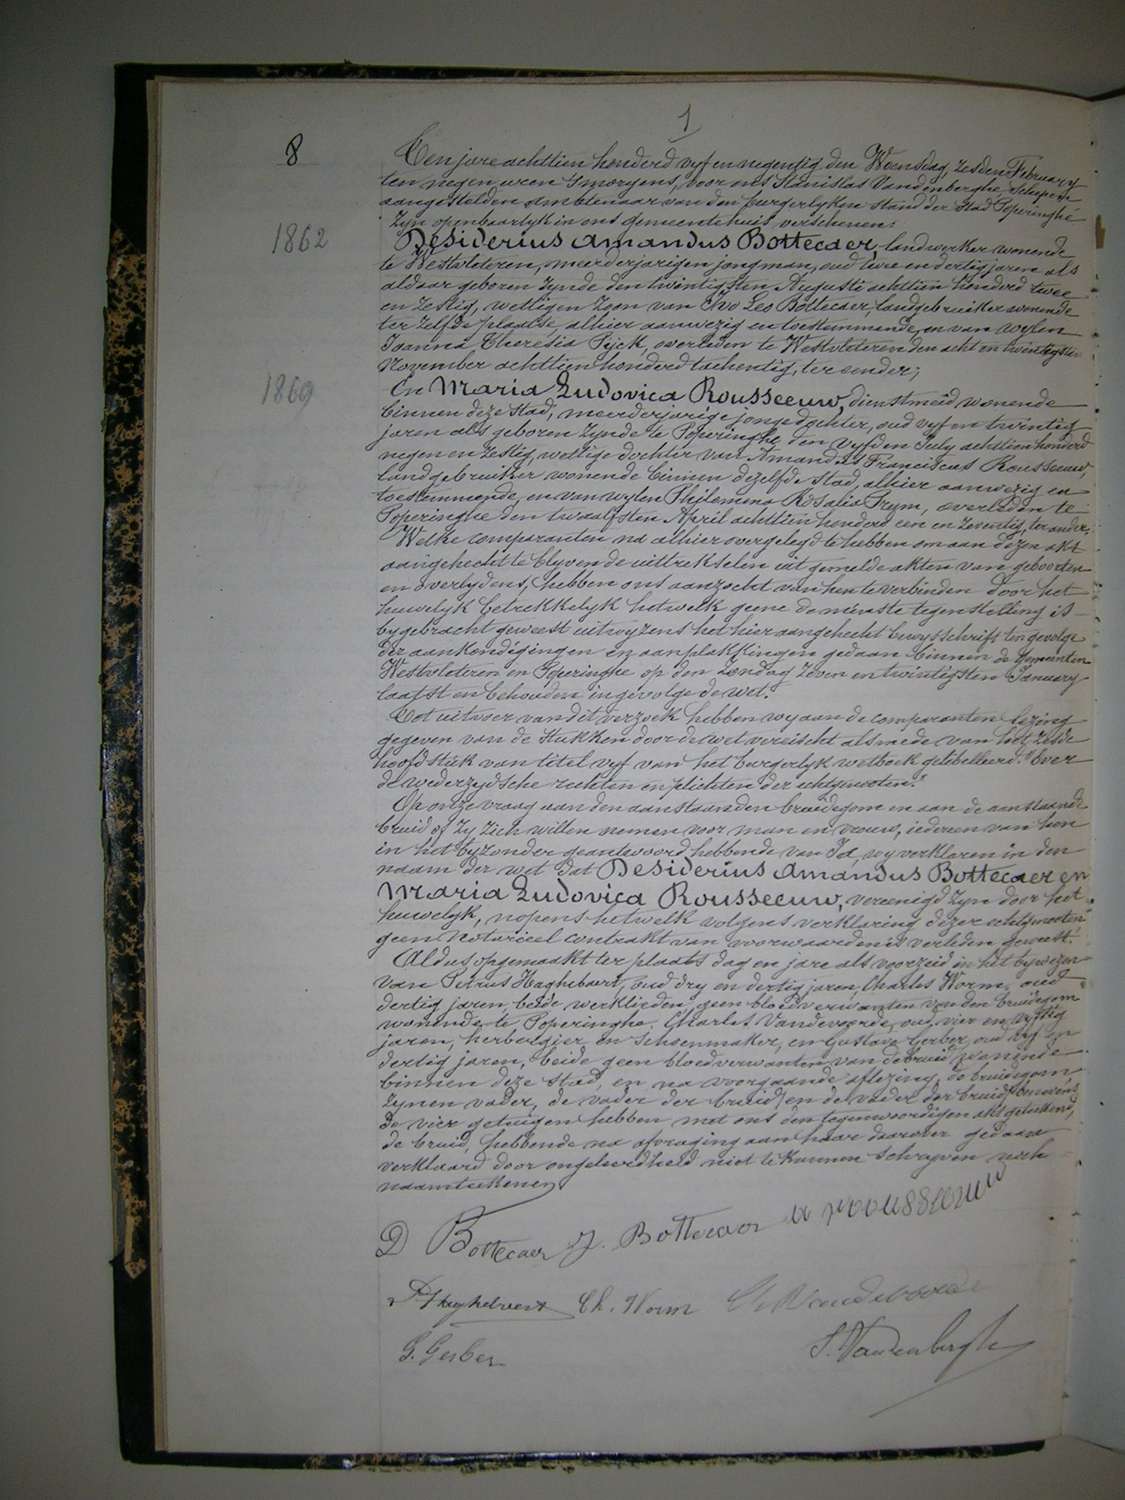 1
8
Ten jare achttien honderd vyf en negentig den Woensdag, zesden February
ten negen uren 's morgens, voor ons Stanislas Vandenberghe, schepene
aangestelden ambtenaar van den burgerlyken stand der Stad Poperinghe
zyn openbaarlyk in ons gemeentehuis verschenen:
1862
Desiderius Amandus Bottecaer, landwerker wonende
te Westvleteren, meerderjarigen jongman, oud twee en dertig jaren als
aldaar geboren zynde den twintigsten Augusti achttien honderd twee
en zestig, wettigen zoon van Ivo Leo Bottecaer, landgebruiker wonende
ter zelfde plaatse, alhier aanwezig en toestemmende, en van wylen
Joanna Theresia Pyck, overleden te Westvleteren den acht en twintigsten
November achttien honderd tachentig, ter eender;
1869
En Maria Ludovica Rousseeuw, dienstmeid wonende
binnen deze stad, meerderjarige jongedochter, oud vyf en twintig
jaren als geboren zynde te Poperinghe den vyfden July achttien honderd
negen en zestig, wettige dochter van Amandus Franciscus Rousseeuw,
landgebruiker wonende binnen dezelfde stad, alhier aanwezig en
toestemmende, en van wylen Philemena Rosalie Prym, overleden te
Poperinghe den twaalfsten April achttien honderd een en zeventig, ter ander;
Welke comparanten na alhier overgelegd te hebben om aan dezen akt
aangehecht te blyven de uittrekselen uit gemelde akten van geboorten
en overlydens, hebben ons aanzocht van hen te verbinden door het
huwelyk betrekkelyk hetwelk geene de minste tegenstelling is
bygebracht geweest uitwyzens het hier aangehecht bewysschrift ten gevolge
der aankondigingen en aanplakkingen gedaan binnen de Gemeenten
Westvleteren en Poperinghe op den zondag zeven en twintigsten January
laatst en behouden ingevolge de wet.
Tot uitvoer van dit verzoek hebben wy aan de comparanten lezing
gegeven van de stukken door de wet vereischt alsmede van het zesde
hoofdstuk van titel vyf van het burgerlyk wetboek getitelleerd: "Over
de wederzydsche rechten en plichten der echtgenoten."
Op onze vraag aan den aanstaanden bruidegom en aan de aanstaande
bruid of zy zich willen nemen voor man en vrouw, iederen van hen
in het byzonder geantwoord hebbende van Ja, wy verklaren in den
naam der wet dat Desiderius Amandus Bottecaer en
Maria Ludovica Rousseeuw, vereenigd zyn door het
huwelyk, nopens hetwelk volgens verklaring dezer echtgenooten
geen Notarieel contrakt van voorwaarden is verleden geweest.
Aldus opgemaakt ter plaats dag en jare als voorzeid in het bywezen
van Petrus Haghebaert, oud dry en dertig jaren, Charles Worm, oud
dertig jaren, beide werklieden, geen bloedverwanten van den bruidegom
wonende te Poperinghe, Charles Vandevoorde, oud vier en vyftig
jaren, herbergier en Gustave Gerber, oud en
dertig jaren, beide geen bloedverwanten van de bruid wonende
binnen deze stad, en na voorgaande aflezing, de bruidegom,
zynen vader, de vader der bruid,
de vier getuigen hebben met ons den tegenwoordigen akt geteekend,
de bruid, hebbende na afvraging aan haar daarover gedaan
verklaard door ongeleerdheid niet te kunnen schryven noch
naamteekenen.
D Bottecaer J. Bottecaer a rousseeuw
P. Haghebaert Ch. Worm Ch Vandevoorde
G. Gerber S. Vandenberghe